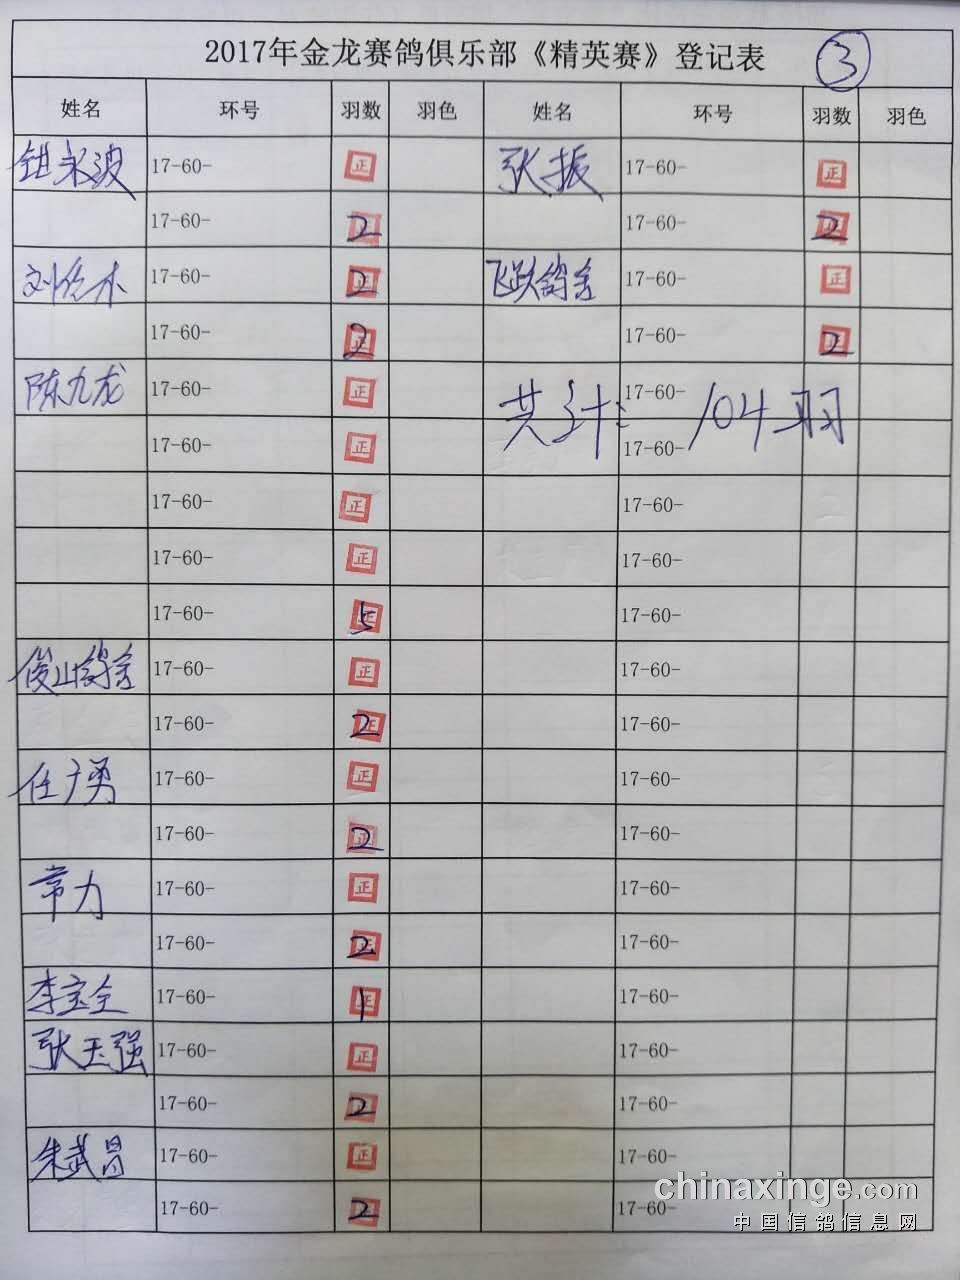 2017年金龙赛鸽俱乐部《精英赛》登记表 3
姓名 环号 羽数 羽色 姓名 环号 羽数 羽色
钳永波 17-60- 正 张振 17-60- 正
17-60- 正 2 17-60- 正 2
刘 木 17-60- 正 2 飞跃鸽舍 17-60- 正
17-60- 正 2 17-60- 正 2
陈九龙 17-60- 正 17-60-
17-60- 正 共计: 17-60- 104羽
17-60- 正 17-60-
17-60- 正 17-60-
17-60- 正 5 17-60-
俊山鸽舍 17-60- 正 17-60-
17-60- 正 2 17-60-
任广勇 17-60- 正 17-60-
17-60- 正 2 17-60-
常力 17-60- 正 17-60-
17-60- 正 2 17-60-
李宝全 17-60- 正 1 17-60-
张玉强 17-60- 正 17-60-
17-60- 正 2 17-60-
朱武昌 17-60- 正 17-60-
17-60- 正 2 17-60-
chinaxinge.com
中国信鸽信息网